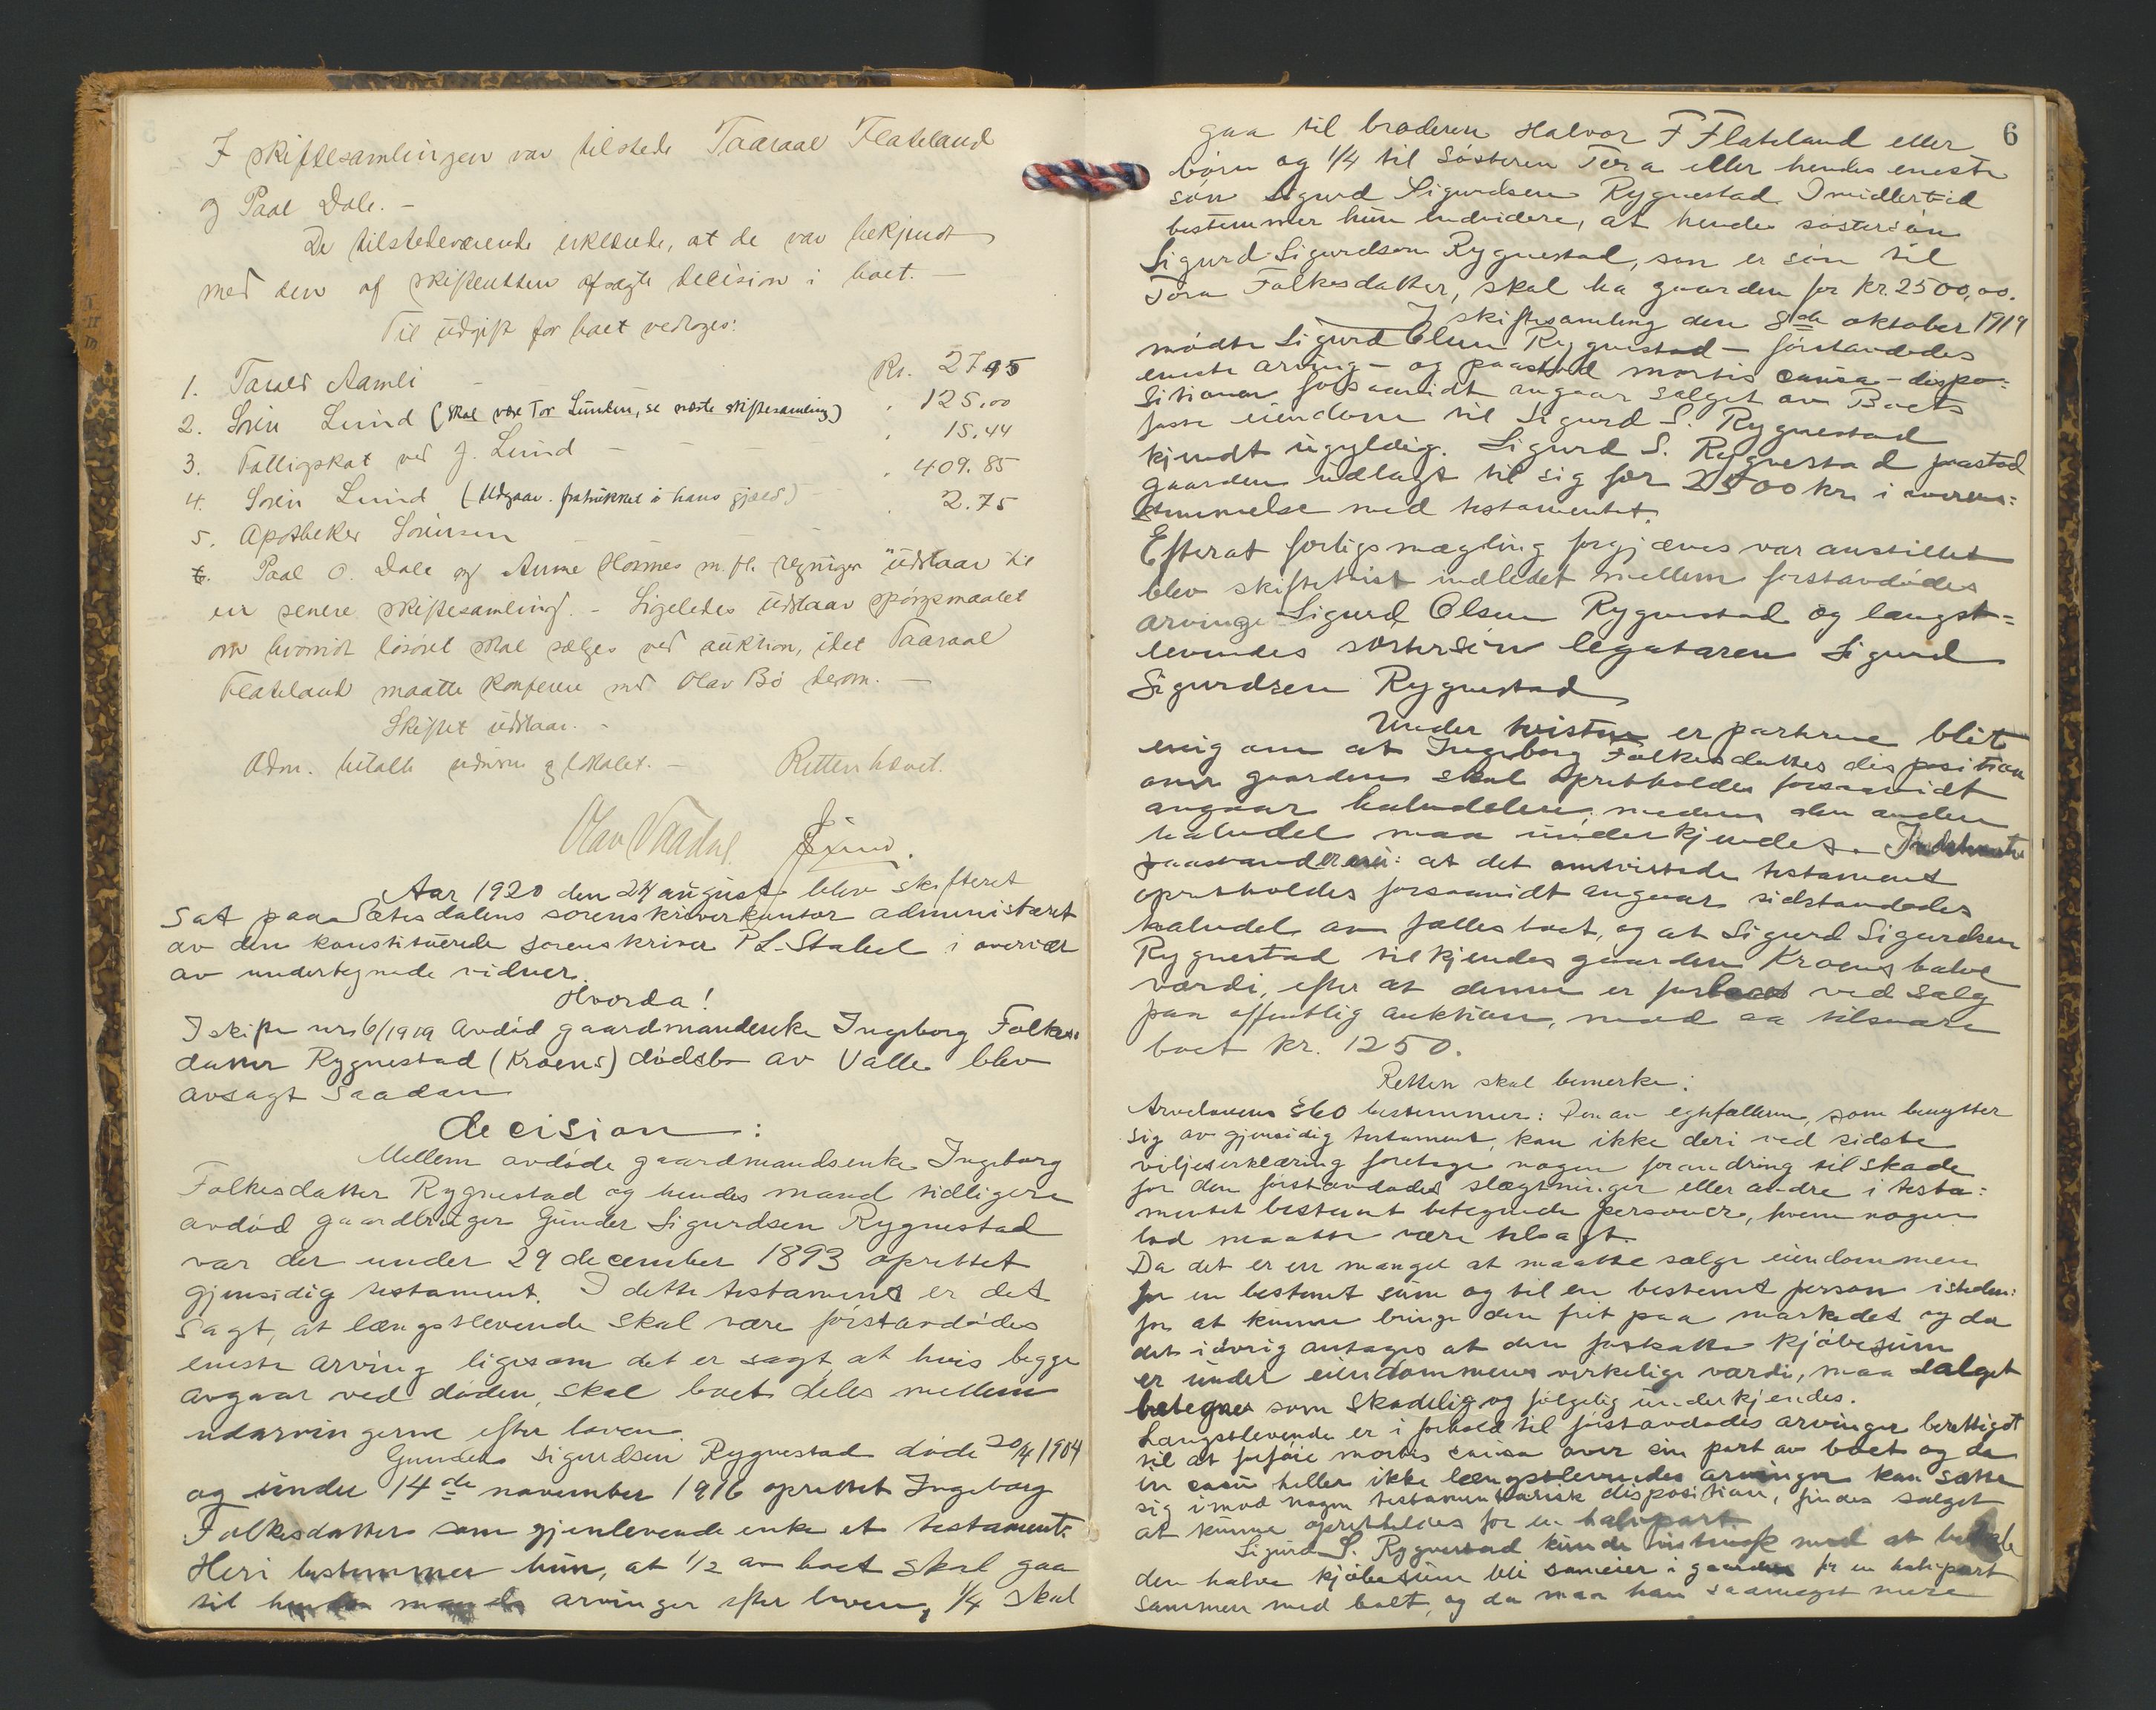 I skiftesamlingen var tilstede Taaraal Flateland
og Paal Dale. -
De tilstedeværende erklærede, at de var bekjendt
med den af skifteretten afsagte decision i boet. -
Til udgift for boet vedtoges:
1. Tarald Aamli - Kr. 27.95
2. Sörin Lund (skal være Tor Lunden, se næste skiftesamling) " 125.00
3. Fattigskat ved J. Lund - - " 15.44
4. Sörin Lund (Udgaar. fratrukket i hans gjæld) - " 409.85
5. Apotheker Sörensen - " 2.75
6. Paal O. Dale og Anne Homnes m. fl. regninger udstaar til
en senere skiftesamling. - Ligeledes udstaar spörgsmaalet
om hvorvidt lösöret skal sælges ved auktion, idet Taaraal
Flateland maatte konferere med Olav Bö derom. -
Skiftet udstaar. -
Adm. betalte vidnerne og lokalet. - Retten hævet.
Olav Vaadal. Lund.
Aar 1920 den 24 august blev skifteret
sat paa Sætesdalens sorenskriverkontor administreret
av den konstituerede sorenskriver P L. Stabel i overvær
av undertegnede vidner.
Hvorda!
I skifte nr 6/1919 avdöd gaardmandsenke Ingeborg Folkes-
datter Rygnestad (Kroens) dödsbo av Valle blev
avsagt saadan
decision:
Mellem avdöde gaardmandsenke Ingeborg
Folkesdatter Rygnestad og hendes mand tidligere
avdöd gaardbruger Gunder Sigurdsen Rygnestad
var der under 29 december 1893 oprettet
gjensidig testament. I dette testament er det
sagt, at længstlevende skal være förstavdödes
eneste arving ligesom det er sagt, at hvis begge
avgaar ved döden, skal boet deles mellem
utarvingerne efter loven.
Gunder Sigurdsen Rygnestad döde 20/4 1904
og under 14de november 1916 oprettet Ingeborg
Folkesdatter som gjenlevende enke et testament.
Heri bestemmer hun, at 1/2 av boet skal gaa
til hendes mands arvinger efter loven, 1/4 skal
6
gaa til broderen Halvor F Flateland eller
börn og 1/4 til sösteren Tora eller hendes eneste
sön Sigurd Sigurdsen Rygnestad. Imidlertid
bestemmer hun endvidere, at hendes söstersön
Sigurd Sigurdson Rygnestad, som er sön til
Tora Folkesdatter, skal ha gaarden for kr. 2500,00.
I skiftesamling den 8de oktober 1919
mödte Sigurd Olsen Rygnestad - förstavdödes
eneste arving - og paastod mortis causa - dispo-
sitionen forsaavidt angaar salget av Boets
faste eiendom til Sigurd S. Rygnestad
kjendt ugyldig. Sigurd S. Rygnestad paastod
gaarden utlagt til sig for 2500 kr. i overens-
stemmelse med testamentet.
Efterat forligsmægling forgjæves var anstillet
blev skiftetvist indledet mellem förstavdödes
arvinge Sigurd Olsen Rygnestad og længst-
levendes söstersön legataren Sigurd
Sigurdsen Rygnestad
Under tvisten er parterne blit
enig om at Ingeborg Folkesdatters disposition
over gaarden skal opretholdes forsaavidt
angaar halvdelen, medens den anden
halvdel maa underkjendes.
paastanderen: at det omtvistede testament
opretholdes forsaavidt angaar sidstavdödes
halvdel av fællesboet, og at Sigurd Sigurdsen
Rygnestad tilkjendes gaarden Kroens halve
værdi, efter at denne er fastsat ved salg
paa offentlig auktion, mod aa tilsvare
boet kr. 1250.
Retten skal bemerke:
Arvelovens §60 bestemmer: Den av egtefællerne, som benytter
sig av gjensidig testament, kan ikke deri ved sidste
viljeserklæring foretage nogen forandring til skade
for den förstavdödes slægtninger eller andre i testa-
mentet bestemt betegnede personer, hvem nogen
lod maatte være tilsagt.
Da det er en mangel at maatte sælge eiendommen
for en bestemt sum og til en bestemt person isteden-
for at kunne bringe den frit paa markedet og da
det iövrig antages at den fastsatte kjöbesum
er under eiendommens virkelige værdi, maa salget
betegnes som skadelig og fölgelig underkjendes.
Længstlevende er i forhold til förstavdödes arvinger berettiget
til at forföie mortis causa over sin part av boet og da
in casu heller ikke længstlevendes arvinger kan sætte
sig imod nogen testamentarisk disposition, findes salget
at kunne opretholdes for en halvpart.
Sigurd S. Rygnestad kunde mod at betale
den halve kjöbesum bli sameier i gaarden for en halvpart
sammen med boet, og da maa han saameget mere